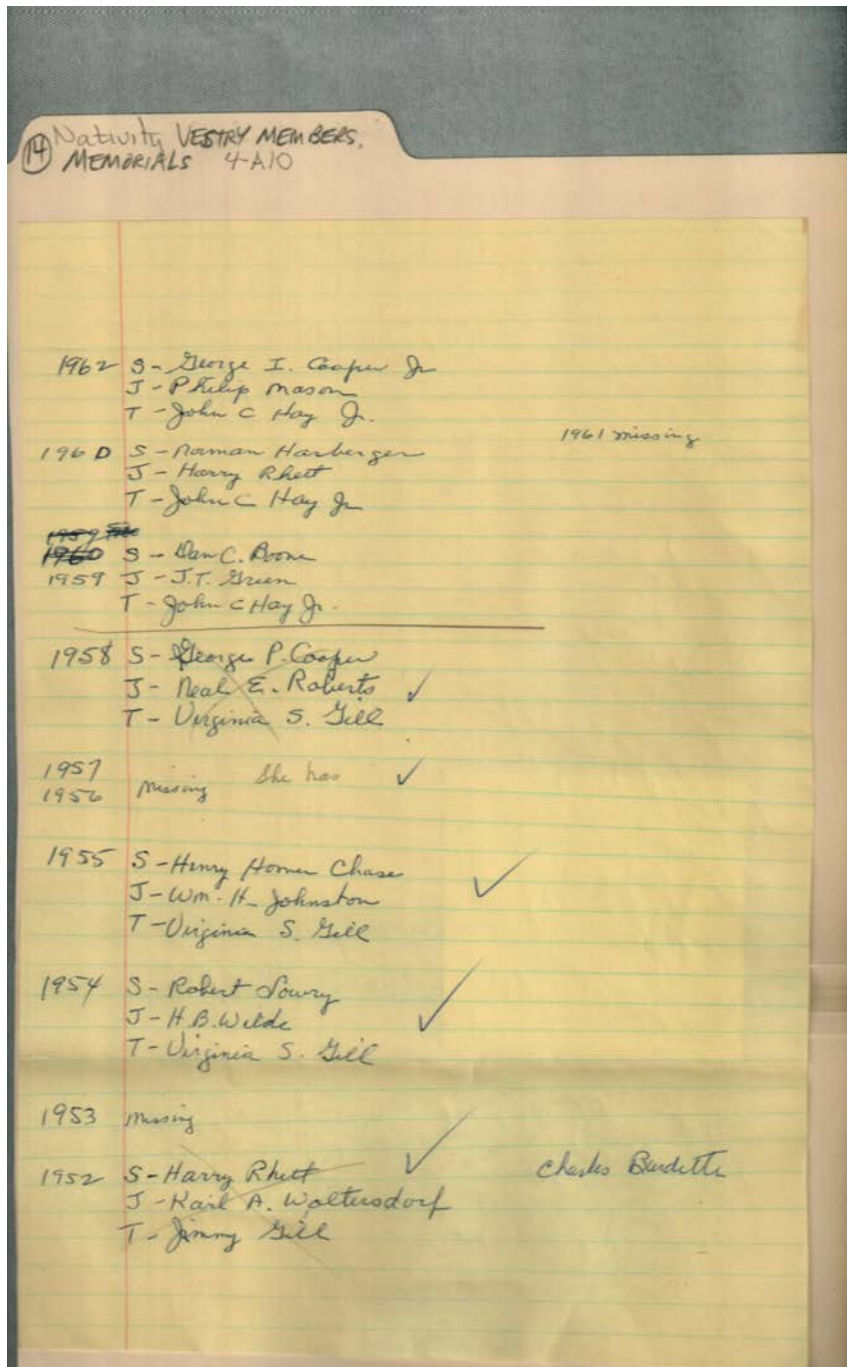 14 Nativity VESTRY MEMBERS,
MEMORIALS 4-A10
1962 S - George I. Cooper Jr
J - Philip Mason
T - John C Hay Jr.
1961 missing
1960 S - Norman Harberger
J - Harry Rhett
T - John C Hay Jr
1959
1960 S - Dan C. Boone
1959 J - J.T. Green
T - John C Hay Jr.
1958 S - George P. Cooper
J - Neal E. Roberts ✓
T - Virginia S. Gill
1957
1956 Missing She has ✓
1955 S - Henry Homer Chase
J - Wm. H. Johnston ✓
T - Virginia S. Gill
1954 S - Robert Lowry
J - H.B. Wilde ✓
T - Virginia S. Gill
1953 Missing
1952 S - Harry Rhett ✓ Charles Burdette
J - Karl A. Woltersdorf
T - Jimmy Gill